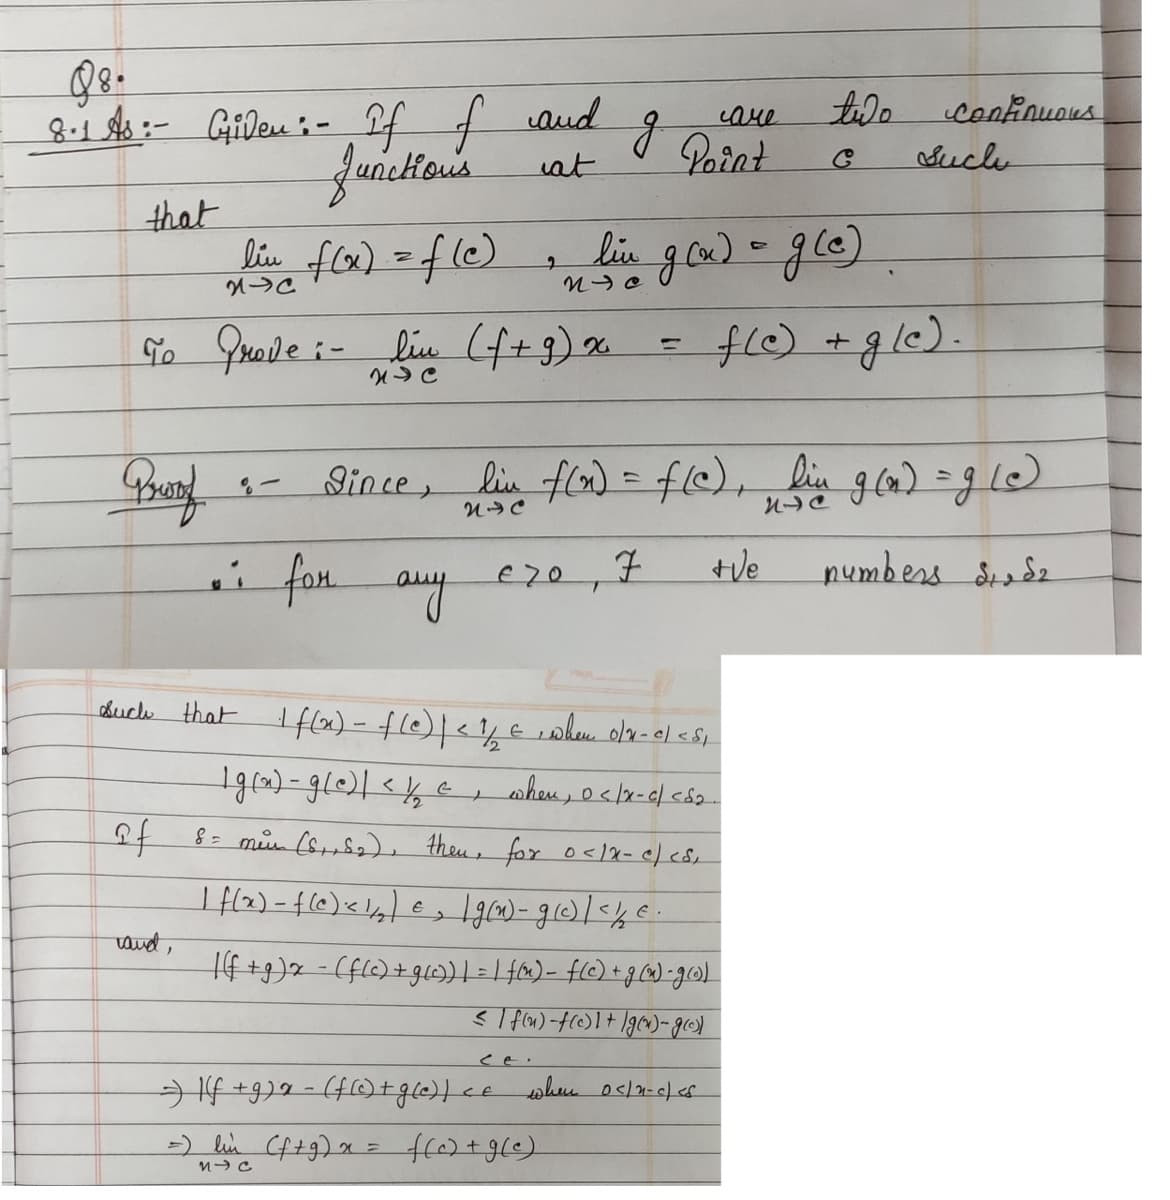 Q8.
8.1 As :- Given :- If f and g are two continuous
functions at Point c such
that
lim f(x) = f(c) , lim g(x) = g(c).
x→c x→c
To Prove :- lim (f+g)x = f(c) + g(c).
x→c
Proof :- Since, lim f(x) = f(c), lim g(x) = g(c)
x→c x→c
∴ for any ε>0, ∃ +ve numbers δ₁, δ₂
such that |f(x) - f(c)| < 1/2 ε, when 0|x-c| <δ₁
|g(x) - g(c)| < 1/2 ε, when, 0<|x-c| <δ₂.
If δ = min (δ₁,,δ₂), then, for 0<|x-c| <δ,
|f(x) - f(c) < 1/2| ε, |g(x) - g(c)| < 1/2 ε.
and,
|(f+g)x - (f(c)+g(c))| = |f(x) - f(c) + g(x)-g(c)|
≤ |f(x)-f(c)| + |g(x)-g(c)|
< ε.
⇒ |(f+g)x - (f(c)+g(c)| <ε when 0<|x-c| <δ
⇒ lim (f+g)x = f(c) + g(c)
x→c